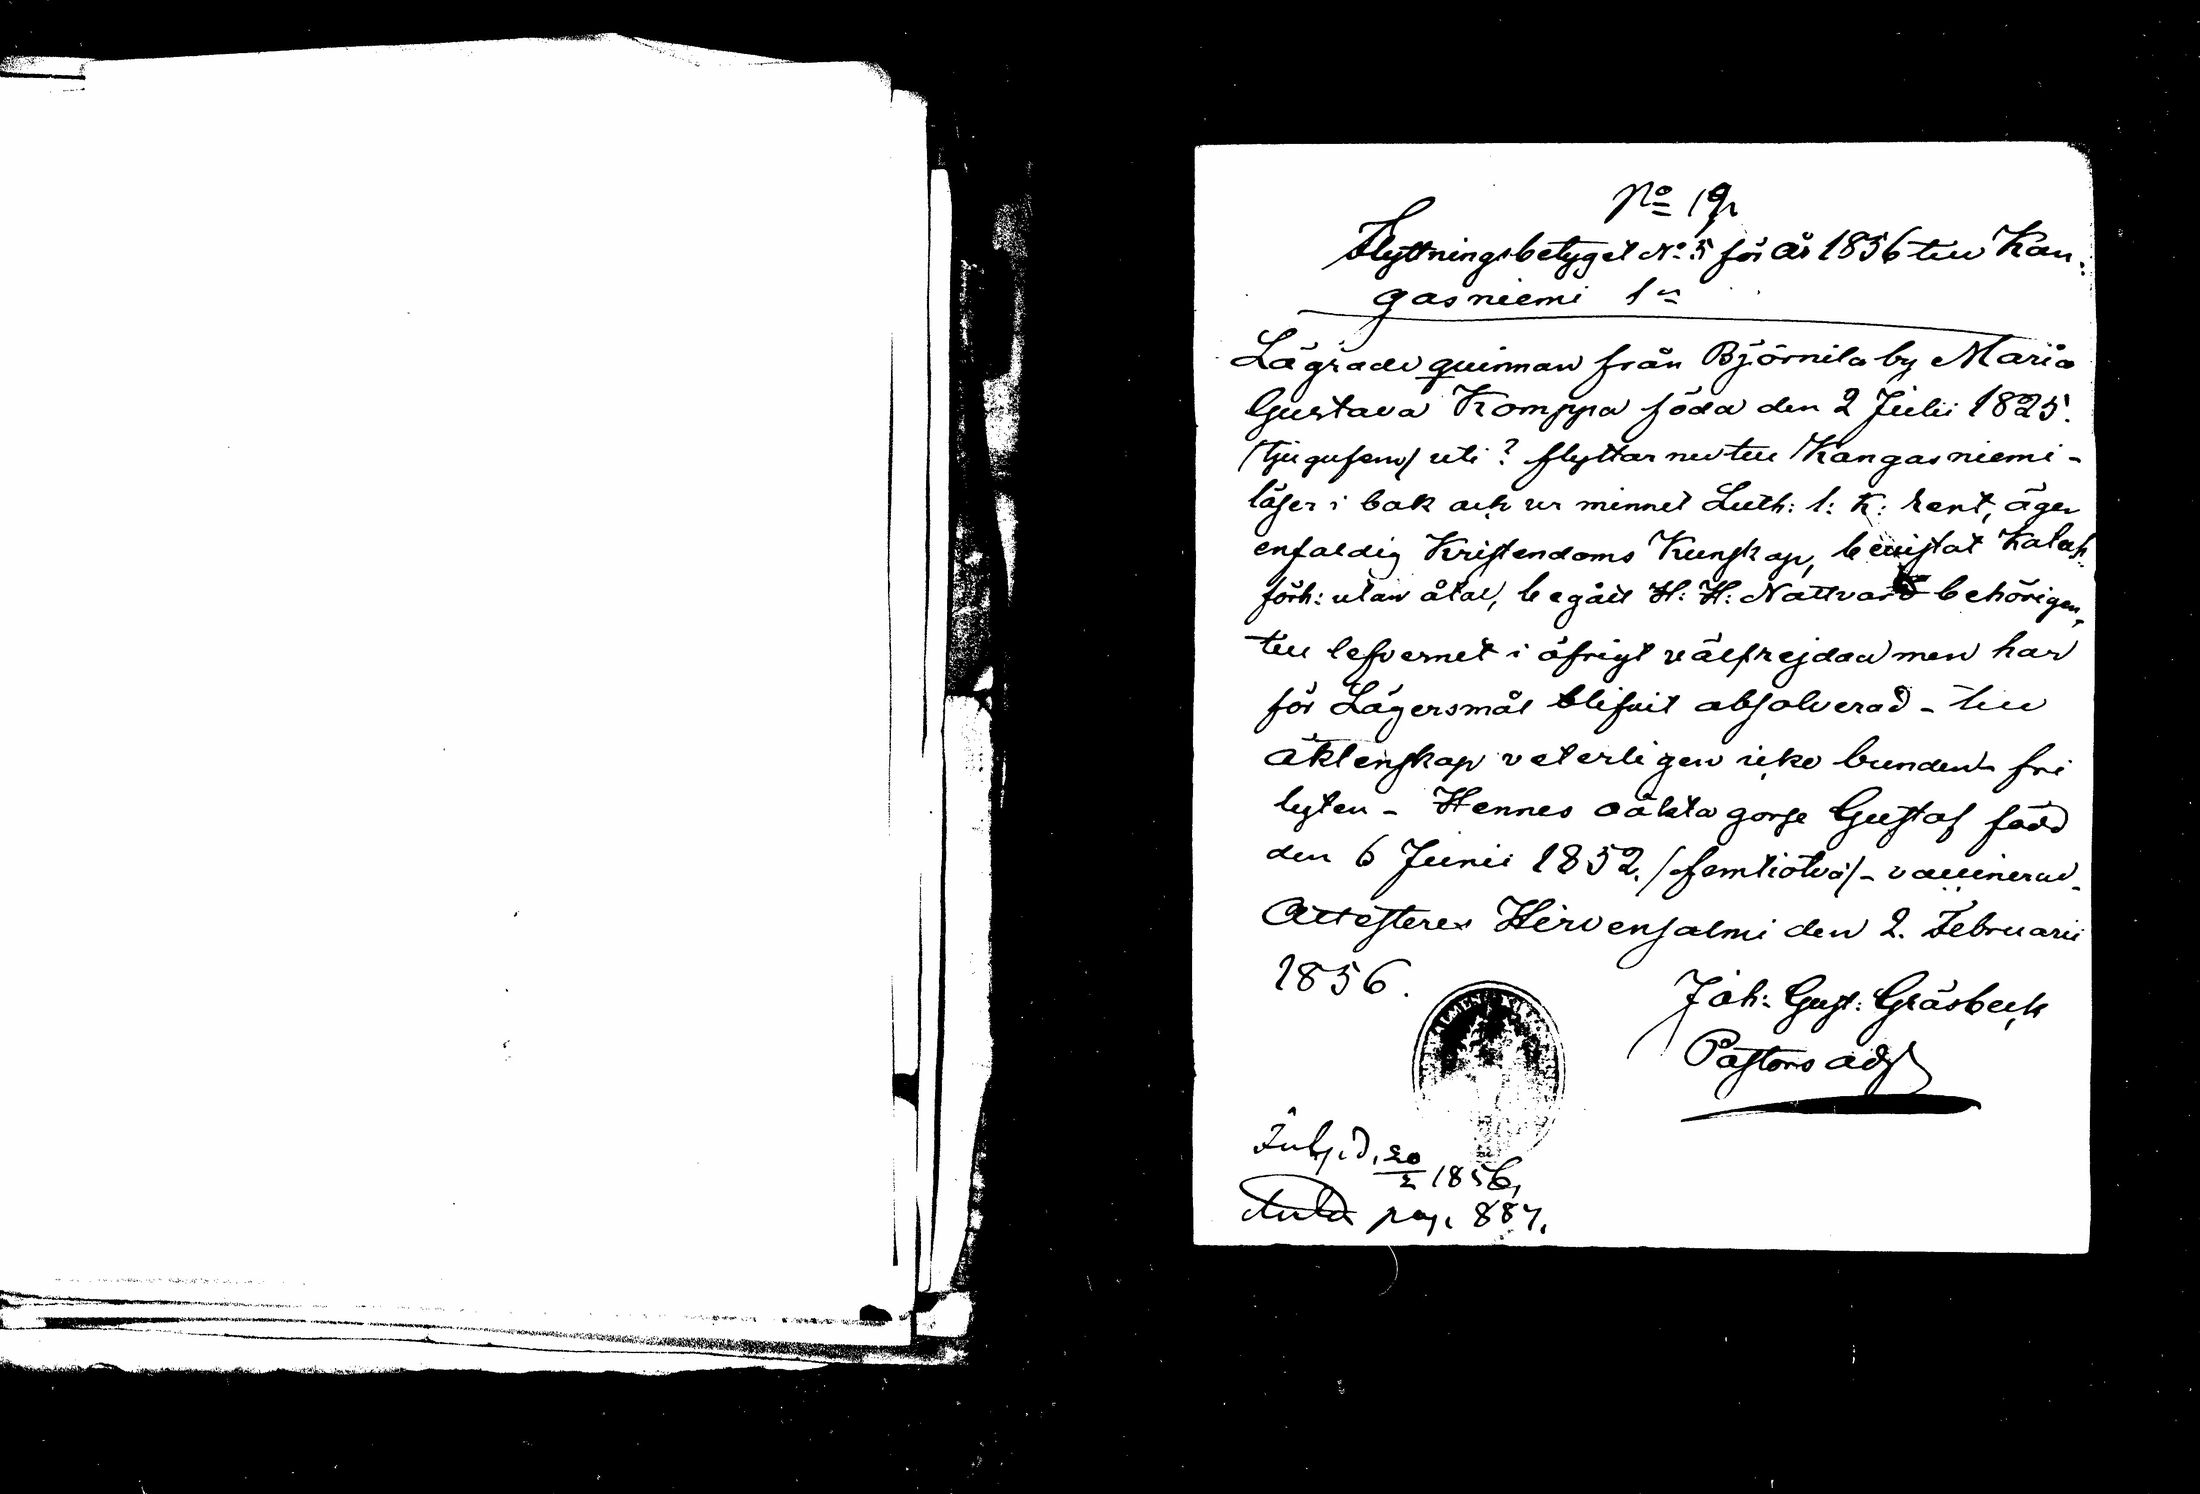 No 19
Flyttningsbetyget No 5 för år 1856 till Kan-
gasniemi
Lägrade quinnan från Björnila by Maria
Gustava Komppa föda den 2 Julii 1825.
/tjugufem/ uti? flyttar nu till Kangasniemi -
läser i bok och ur minnet Luth: l: K: rent, äger
enfaldig Kristendoms Kunskap, bevistat Katek:
förh: utan åtal, begått H: H: Nattvard behörigen,
till lefvernet i öfrigt välfrejdad men har
för Lägersmål blifvit absolverad - till
äktenskap veterligen icke bunden - fri
lysten - Hennes oäkta gosse Gustaf född
den 6 Junii 1852. /femtiotvå/ - vaccinerad -
Attesteres Hirvensalmi den 2. Februarii
1856.
Joh: Gust: Gräsbeck
Pastors adj
20/2 1856,
pag. 887.